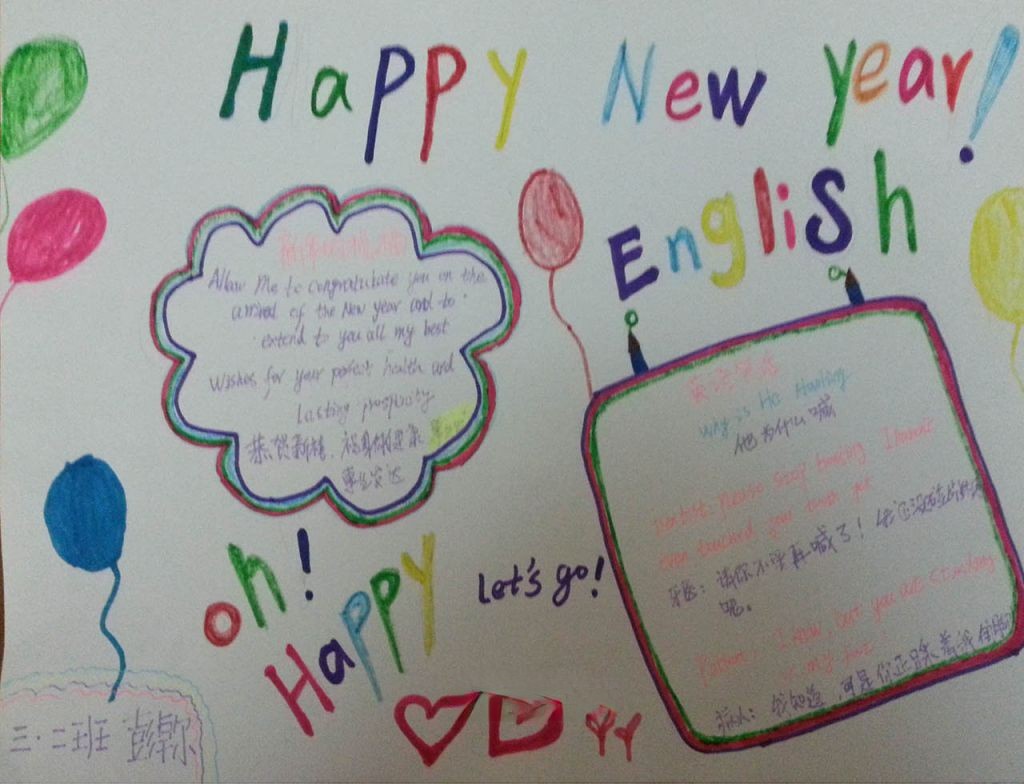 Happy New year!
English
Allow Me to congratulate you on the
arrival of the New year and to
extend to you all my best
Wishes for your perfect health and
lasting prosperity
恭贺新禧，祝身体健康
事业发达
Why is He Howling
他为什么喊
Dentist: please stop howling. I haven't
even touched your tooth yet
牙医：请你不要再喊了！我还没碰你的牙
呢。
Patient: I know, but you are standing
on my foot!
病人：我知道，可是你正踩着我的脚
oh!
Happy
Let's go!
三·二班